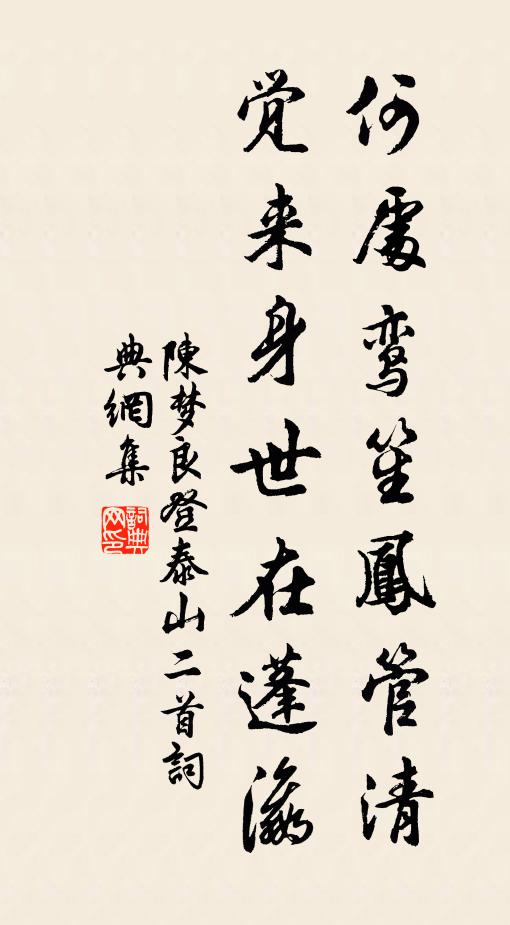 何處鸾笙鳳管清
觉来身世在蓬瀛
陳梦良登泰山二首詞
典網集
詞典网印